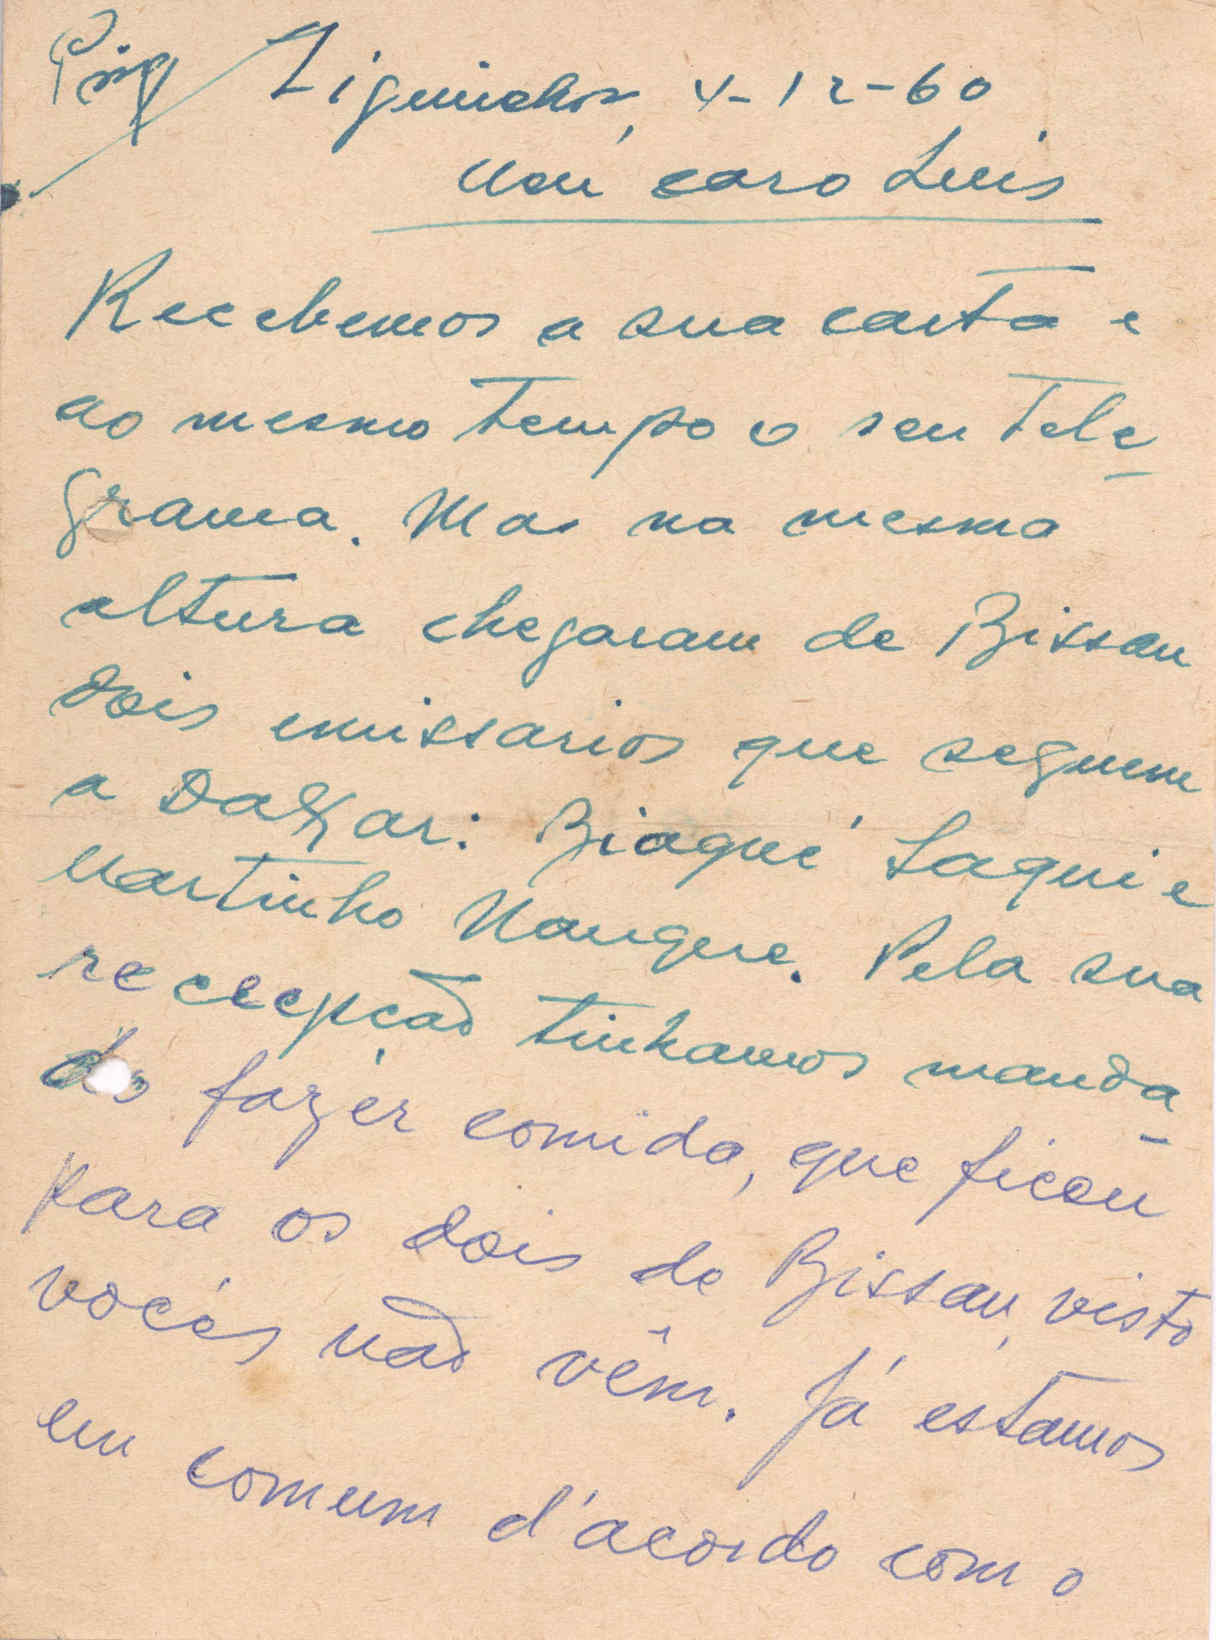 Ziguinchor, 4-12-60
Meu caro Luis
Recebemos a sua carta e
ao mesmo tempo o seu tele-
grama. Mas na mesma
altura chegaram de Bissau
dois emissarios que seguem
a Dakar: Biagué Saqui e
Martinho Nanque. Pela sua
recepção tinhamos manda-
do fazer comida, que ficou
para os dois de Bissau, visto
vocês não vêm. Já estamos
em comum d'acordo com o